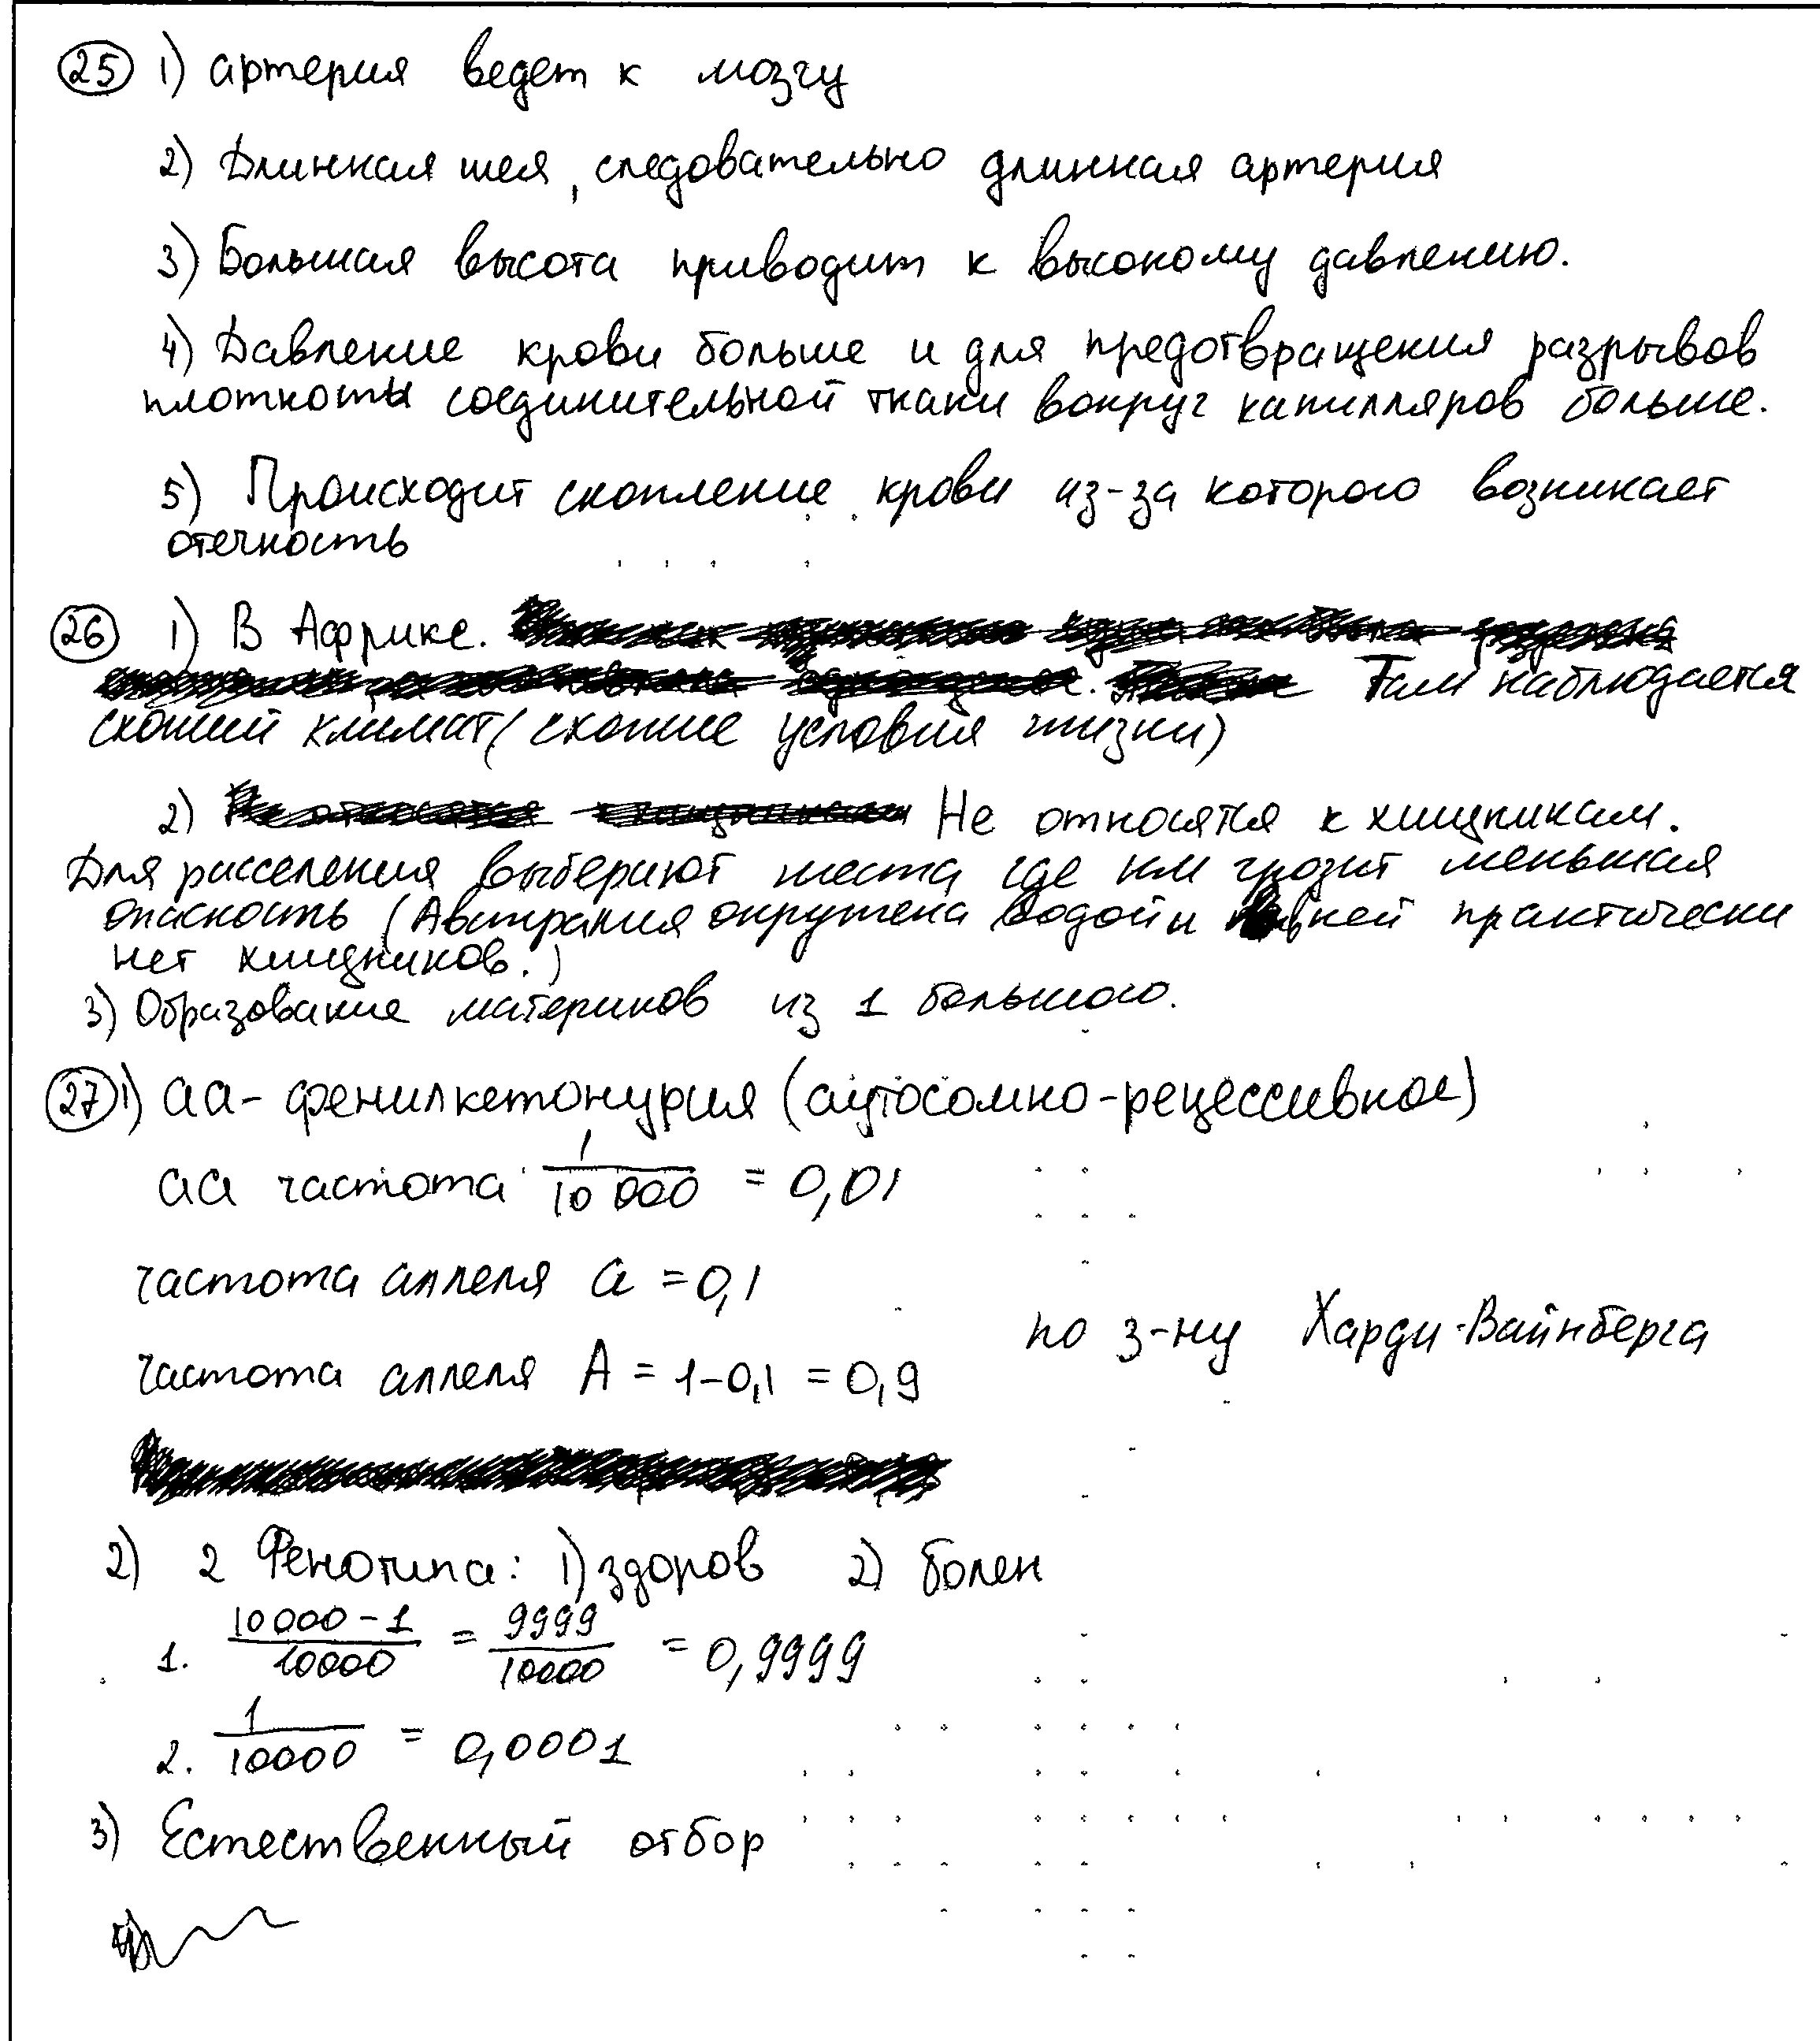 25 1) артерия ведет к мозгу
2) Длинная шея, следовательно длинная артерия
3) Большая высота приводит к высокому давлению.
4) Давление крови больше и для предотвращения разрывов
плотность соединительной ткани вокруг капилляров больше.
5) Происходит скопление крови из-за которого возникает
отечность
26 1) В Африке.
Там наблюдается
схожий климат (схожие условия жизни)
2) Не относятся к хищникам.
Для расселения выбирают места где им грозит меньшая
опасность (Австралия окружена водой и в ней практически
нет хищников.)
3) Образование материков из 1 большого.
27 1) аа - фенилкетонурия (аутосомно-рецессивное)
аа частота 1/10 000 = 0,01
частота аллеля а = 0,1
по з-ну Харди-Вайнберга
частота аллеля А = 1-0,1 = 0,9
2) 2 Фенотипа: 1) здоров 2) болен
1. 10000-1/10000 = 9999/10000 = 0,9999
2. 1/10000 = 0,0001
3) Естественный отбор